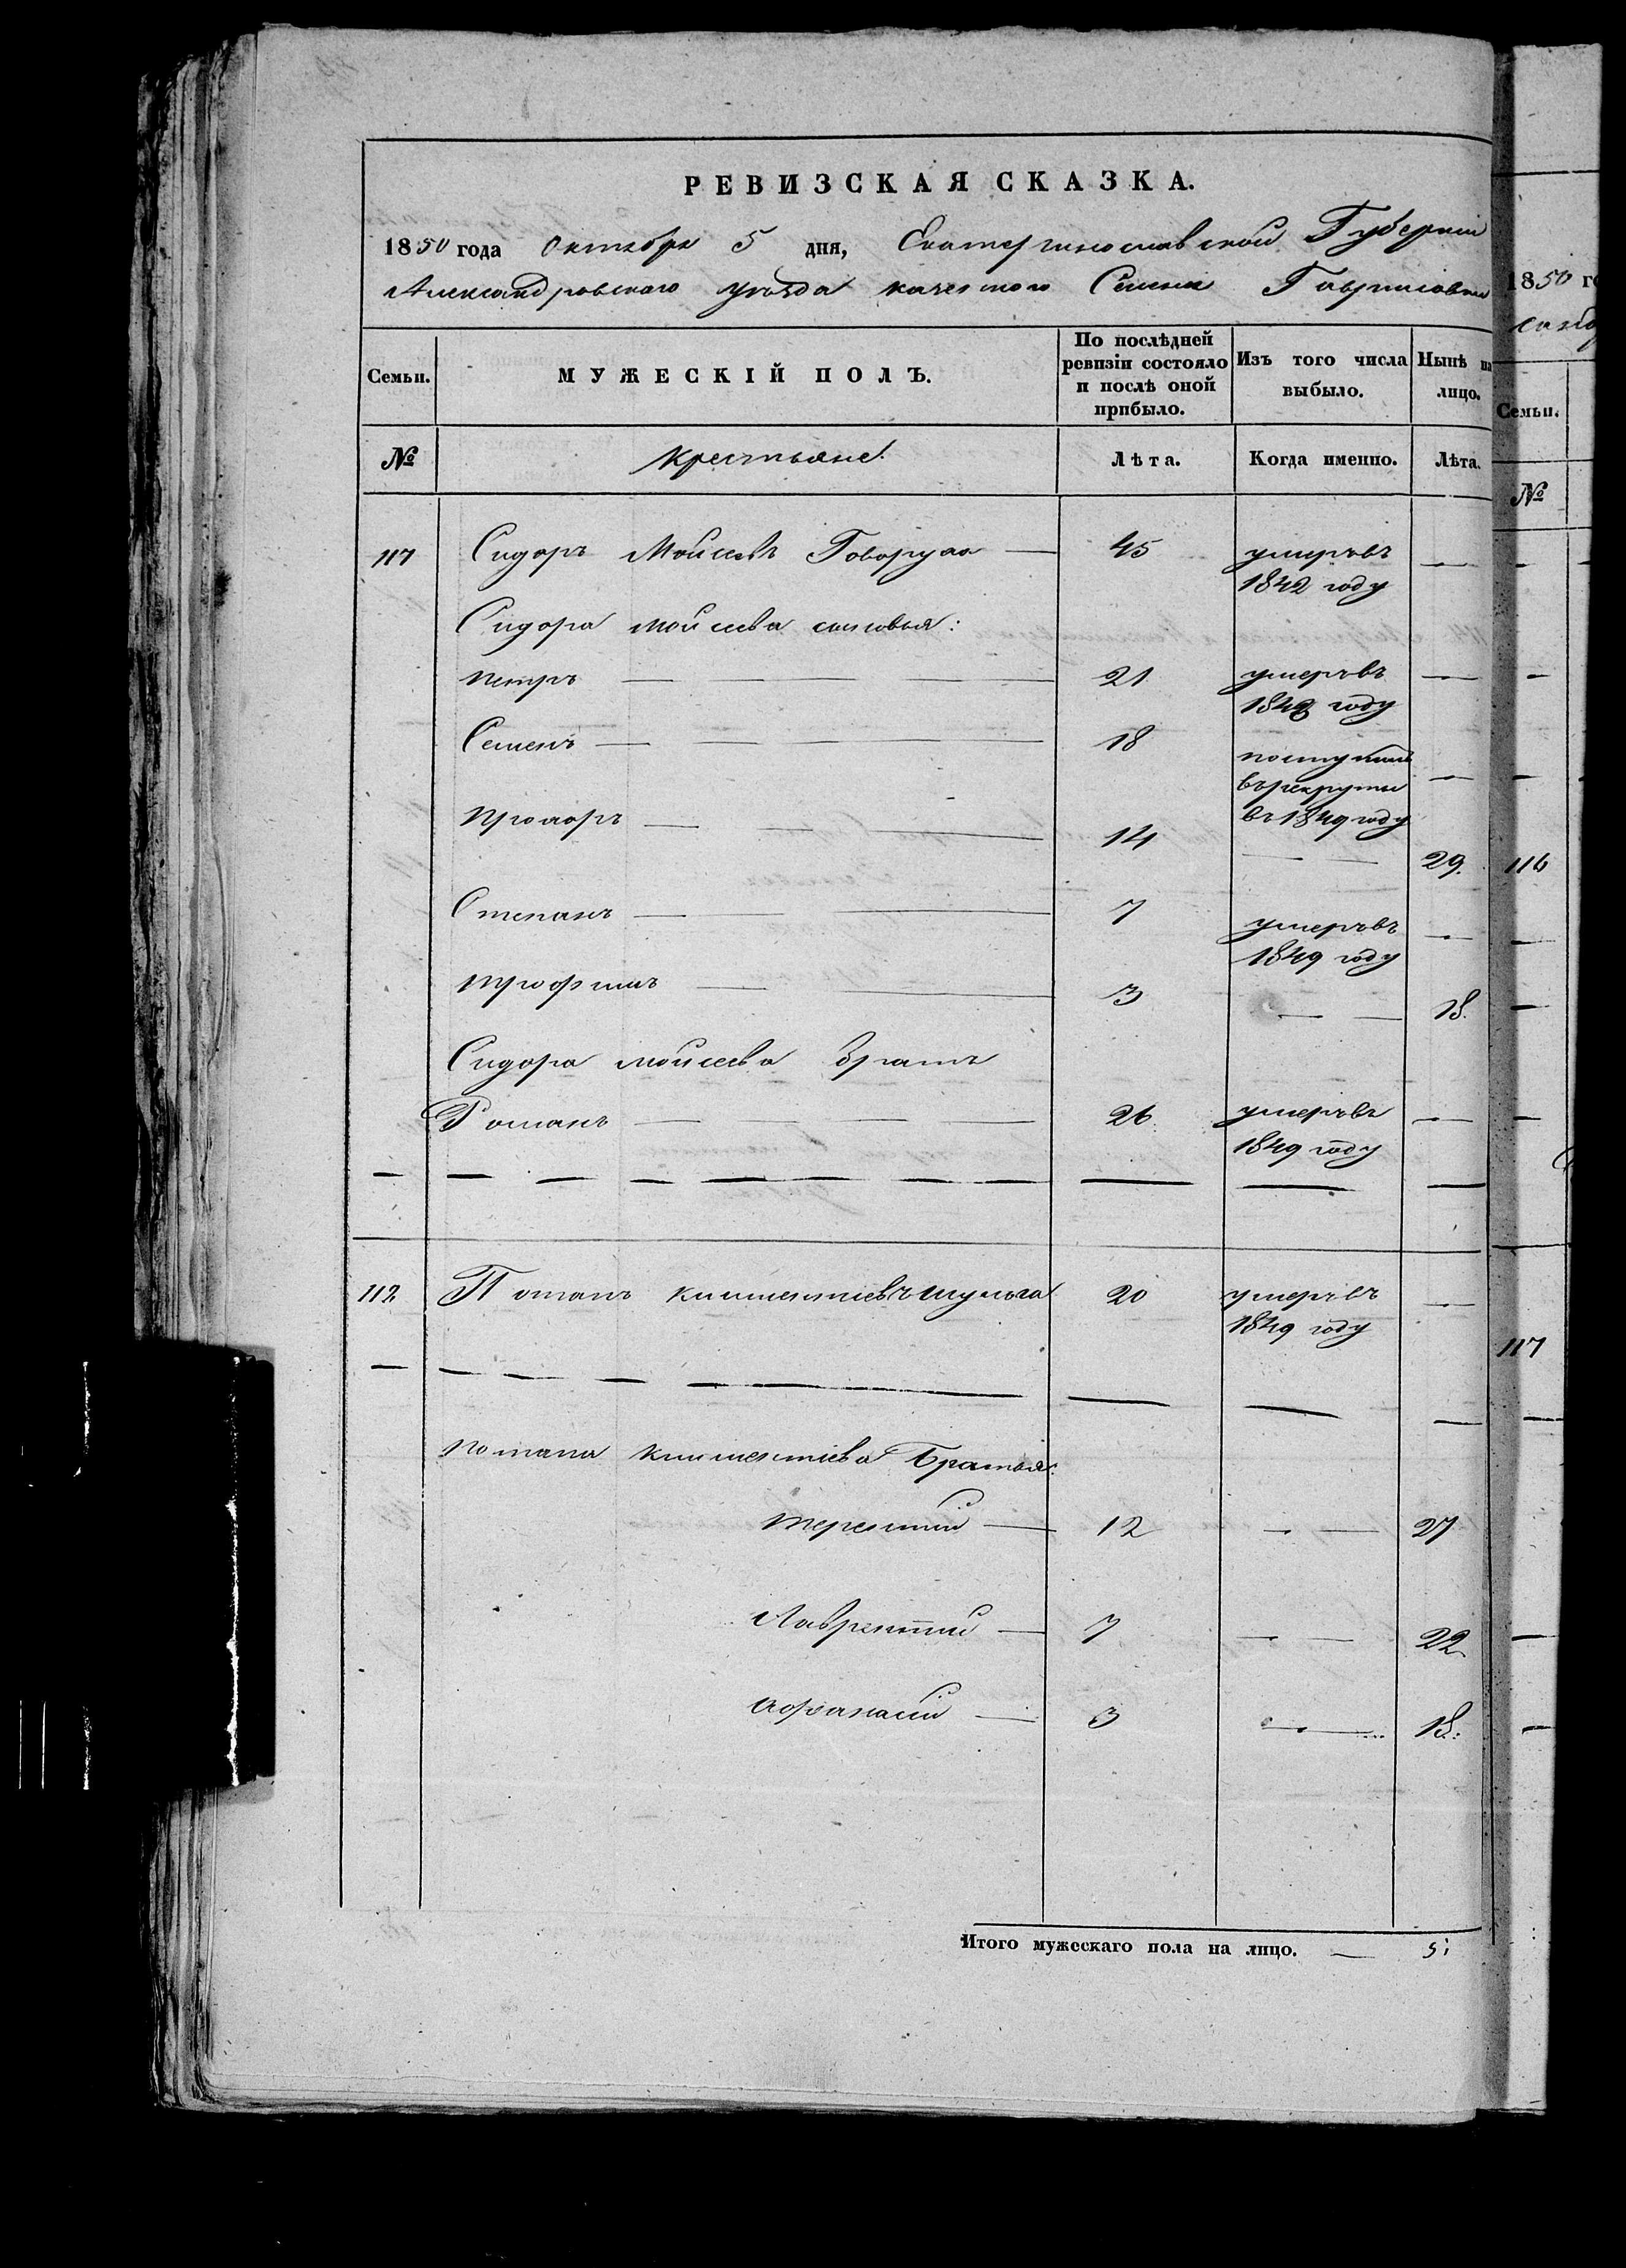 РЕВИЗСКАЯ СКАЗКА.
1850 года Октября 5 дня, Екатеринославской Губерніи
Александровскаго уѣзда казенного Селенія Гавриловки
Семьи. МУЖЕСКІЙ ПОЛЪ. По послѣдней ревизіи состояло и послѣ оной прибыло. Изъ того числа выбыло. Нынѣ на лицо.
№ Крестьяне. Лѣта. Когда именно. Лѣта.
117 Сидоръ Моисеевъ Говоруха — 45 умеръ въ —
1842 году
Сидора Моисеева сыновья:
Петръ — 21 умеръ въ —
184 году
Семенъ — 18 поступилъ
въ рекруты —
въ 1849 году
Прохоръ — 14 — 29.
Степанъ — 7 умеръ въ —
1849 году
Трофимъ — 3 — 18.
Сидора Моисеева братъ
Романъ — 26 умеръ въ —
1849 году
112 Потапъ Климентіевъ Шульга 20 умеръ въ —
1849 году
Потапа Климентіева Братья:
Терентій — 12 — 27
Лаврентий — 7 — 22
Афанасій — 3 — 18.
Итого мужескаго пола на лицо. — 5
1850 го
Семьи.
№
116
117